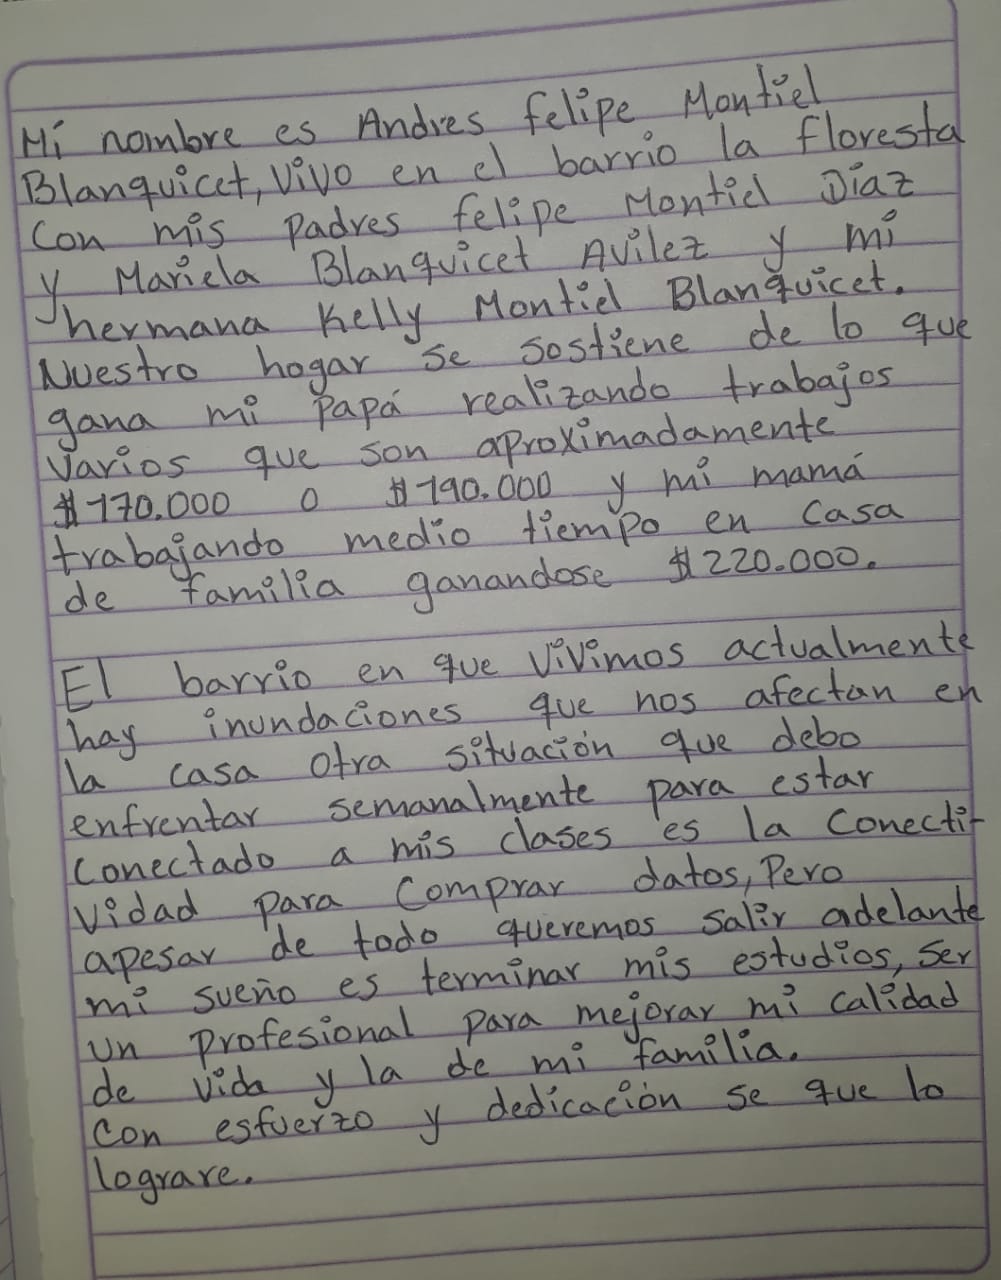 Mi nombre es Andres felipe Montiel
Blanquicet, Vivo en el barrio la floresta
Con mis padres felipe Montiel Díaz
y Mariela Blanquicet Avilez y mi
hermana Kelly Montiel Blanquicet.
Nuestro hogar se sostiene de lo que
gana mi papá realizando trabajos
varios que son aproximadamente
$170.000 o $190.000 y mi mamá
trabajando medio tiempo en casa
de familia ganandose $220.000.
El barrio en que vivimos actualmente
hay inundaciones que nos afectan en
la casa otra situación que debo
enfrentar semanalmente para estar
conectado a mis clases es la conecti-
vidad para comprar datos, Pero
apesar de todo queremos salir adelante
mi sueño es terminar mis estudios, ser
un profesional para mejorar mi calidad
de vida y la de mi familia.
Con esfuerzo y dedicación se que lo
lograre.